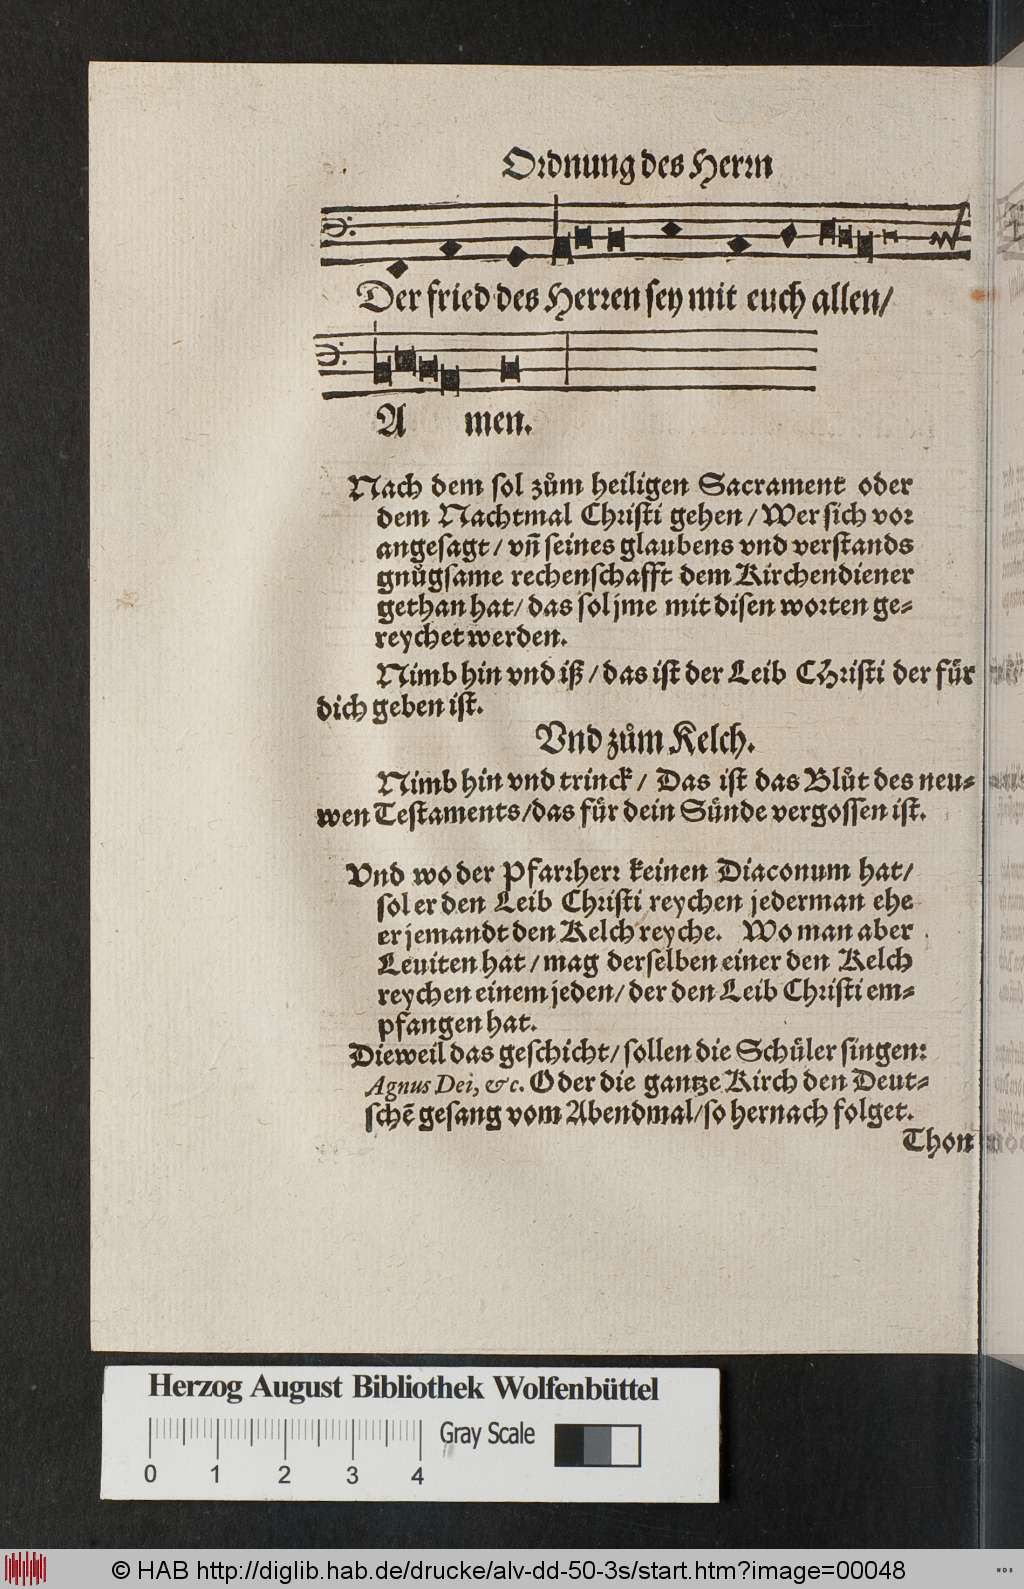 Ordnung des Herrn
Der fried des Herren sey mit euch allen/
A men.
Nach dem sol zům heiligen Sacrament oder
dem Nachtmal Christi gehen / Wer sich vor
angesagt / vñ seines glaubens vnd verstands
gnůgsame rechenschafft dem Kirchendiener
gethan hat/ das sol jme mit disen worten ge-
reychet werden.
Nimb hin vnd iß / das ist der Leib Christi der für
dich geben ist.
Vnd zům Kelch.
Nimb hin vnd trinck / Das ist das Blůt des neu-
wen Testaments/das für dein Sünde vergossen ist.
Vnd wo der Pfarrherr keinen Diaconum hat/
sol er den Leib Christi reychen jederman ehe
er jemandt den Kelch reyche. Wo man aber
Leuiten hat / mag derselben einer den Kelch
reychen einem jeden/ der den Leib Christi em-
pfangen hat.
Dieweil das geschicht/ sollen die Schüler singen:
Agnus Dei, &c. Oder die gantze Kirch den Deut-
schē gesang vom Abendmal/so hernach folget.
Thon
Herzog August Bibliothek Wolfenbüttel
Gray Scale
0 1 2 3 4
© HAB http://diglib.hab.de/drucke/alv-dd-50-3s/start.htm?image=00048